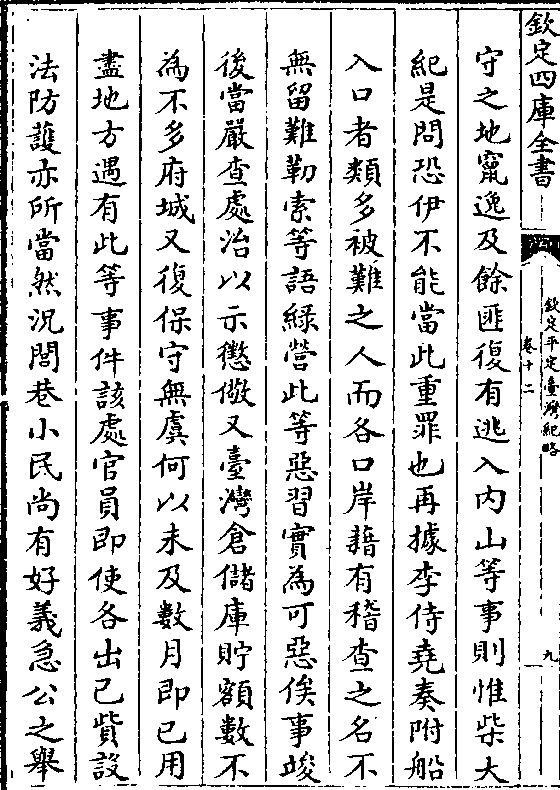 欽定四庫全書
欽定平定臺灣紀略
卷十二
九
守之地竄逸及餘匪復有逃入内山等事則惟柴大
紀是問恐伊不能當此重罪也再據李侍堯奏附船
入口者類多被難之人而各口岸藉有稽查之名不
無留難勒索等語綠營此等惡習實為可惡俟事竣
後當嚴查處治以示懲儆又臺灣倉儲庫貯額數不
為不多府城又復保守無虞何以未及數月即已用
盡地方遇有此等事件該處官員即使各出己貲設
法防護亦所當然况閭巷小民尚有好義急公之舉